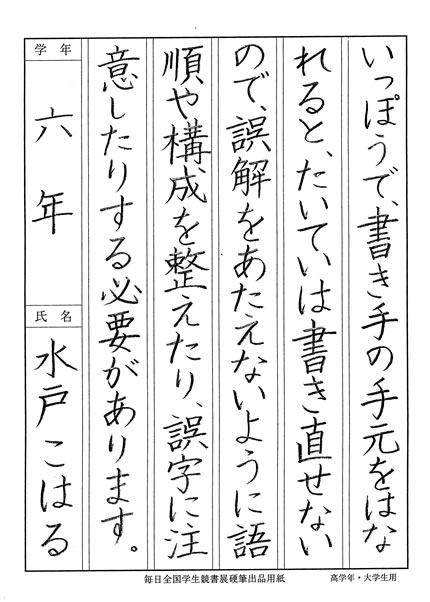 いっぽうで、書き手の手元をはな
れると、たいていは書き直せない
ので、誤解をあたえないように語
順や構成を整えたり、誤字に注
意したりする必要があります。
学年
六年
氏名
水戸こはる
毎日全国学生競書展硬筆出品用紙
高学年・大学生用